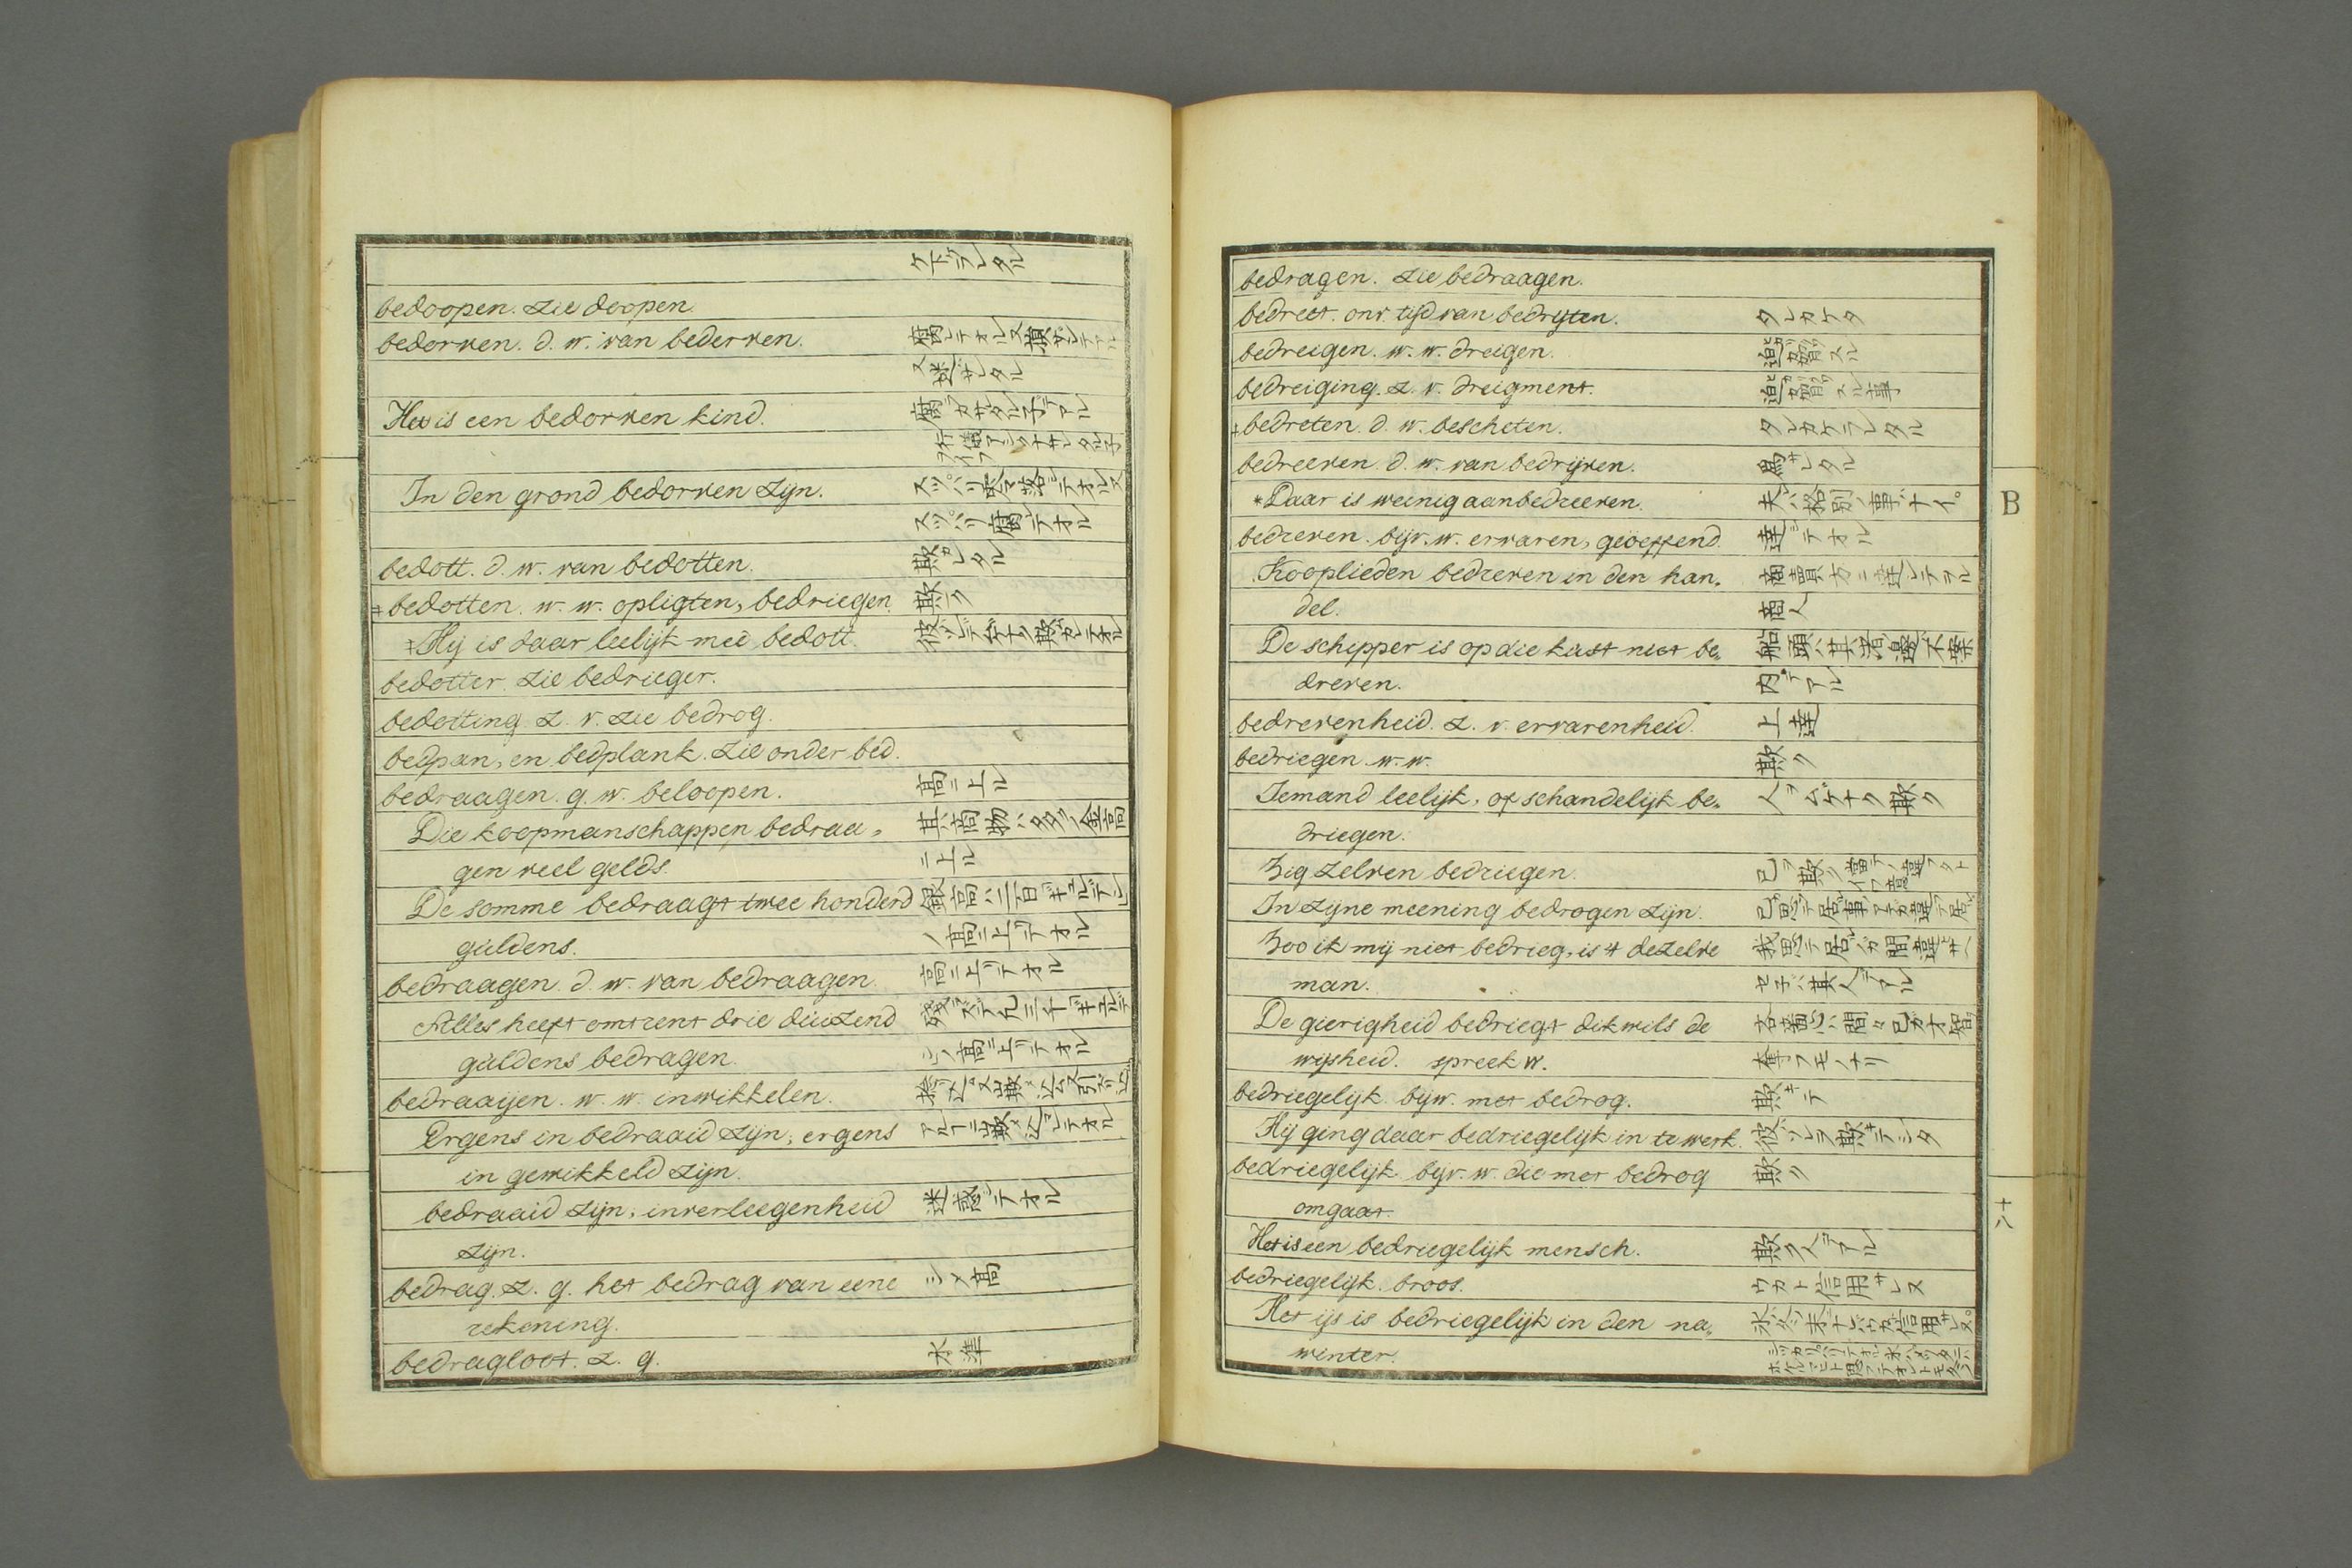 ケ下ツラレタル
bedoopen. zie doopen.
bedorven. d. w. van bederven. 腐レテオル又損サレテアル
又迷ハサレタル
Het is een bedorven kind. 腐ラカサレタル子デアル
In den grond bedorven zijn.
スッパリ腐レテオル
bedott. d. w. van bedotten. 欺カレタル
‡bedotten. w. w. opligten, bedriegen. 欺ク
‡Hij is daar leelijk meê bedott.
bedotter. zie bedrieger.
bedotting. z. v. zie bedrog.
bedpan, en bedplank. zie onder bed.
bedraagen. g. w. beloopen. 高ニ上ル
Die koopmanschappen bedraa= 其商物ハ多クノ金高
gen veel gelds. ニ上ル
De somme bedraagt twee honderd 銀高ハ二百ギュルデン
guldens. ノ高ニ上リテオル
bedraagen. d. w. van bedraagen. 高ニ上リテオル
Alles heeft omtrent drie duizend 残ラズデ凡三千ギュルデ
guldens bedragen. ンノ高ニ上リテオル
bedraaijen. w. w. inwikkelen.
Ergens in bedraaid zijn, ergens
in gewikkeld zijn.
bedraaid zijn, in verleegenheid 迷惑シテオル
zijn.
bedrag. z. g. het bedrag van eene シメ高
rekening.
bedragloot. z. g. 水準
bedragen. zie bedraagen.
bedreet. onv. tijd van bedrijten. クレカケタ
bedreigen. w. w. dreigen. 迫脅スル
bedreiging. z. v. dreigment. 迫脅スル事
‡bedreten. d. w. bescheten. クレカケラレタル
bedreeven. d. w. van bedrijven. 為サレタル
*Daar is weinig aan bedreeven. 夫ハ格別ノ事デナイ。
bedreven. bijv. w. ervaren, geoeffend. 達シテオル
Kooplieden bedreven in den han= 商賣方ニ達シテヲル
del. 商人
De schipper is op die kust niet be= 船頭ハ其渚邊不案
dreven. 内デアル
bedrevenheid. z. v. ervarenheid. 上達
bedriegen. w. w. 欺ク
Iemand leelijk, of schandelijk be= 人ヲムゲナク欺ク
driegen.
Zig zelven bedriegen.
In zijne meening bedrogen zijn.
Zoo ik mij niet bedrieg, is 't dezelve
man. セデハ其人デアル
De gierigheid bedriegt dikwils de
wijsheid. spreek w. 奪フモノナリ
bedriegelijk. bijw. met bedrog. 欺キテ
Hij ging daar bedriegelijk in te werk. 彼ハソレヲ欺キテシタ
bedriegelijk. bijv. w. die met bedrog 欺ク
omgaat.
Het is een bedriegelijk mensch. 欺ク人デアル
bedriegelijk. broos. ウカト信用サレヌ
Het ijs is bedriegelijk in den na=
winter.
B